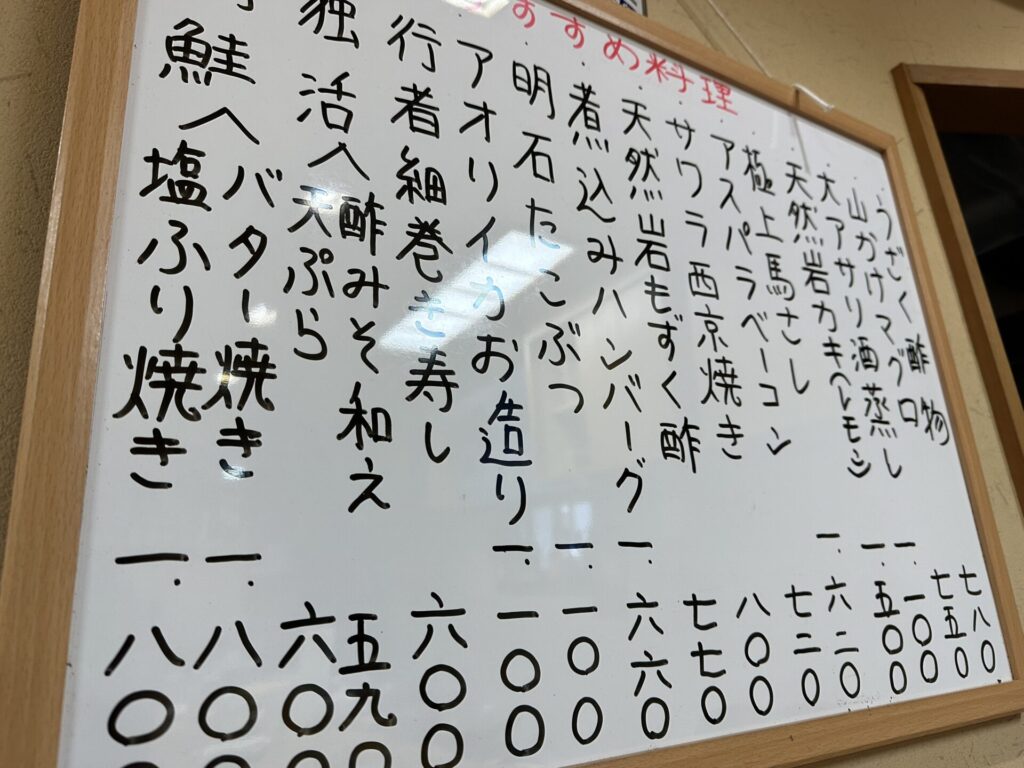 すすめ料理
うざく酢物 七八〇
山かけマグロ 七五〇
大アサリ酒蒸し 一.一〇〇
天然岩カキ(レモン) 一.五〇〇
極上馬さし 一.六二〇
アスパラベーコン 七二〇
サワラ西京焼き 八〇〇
天然岩もずく酢 七七〇
煮込みハンバーグ 一.六六〇
明石たこぶつ 一.一〇〇
アオリイカお造り 一.一〇〇
行者細巻き寿し 六〇〇
独活へ酢みそ和え 五九〇
天ぷら 六〇〇
鮭へバター焼き 一.八〇〇
塩ふり焼き 一.八〇〇